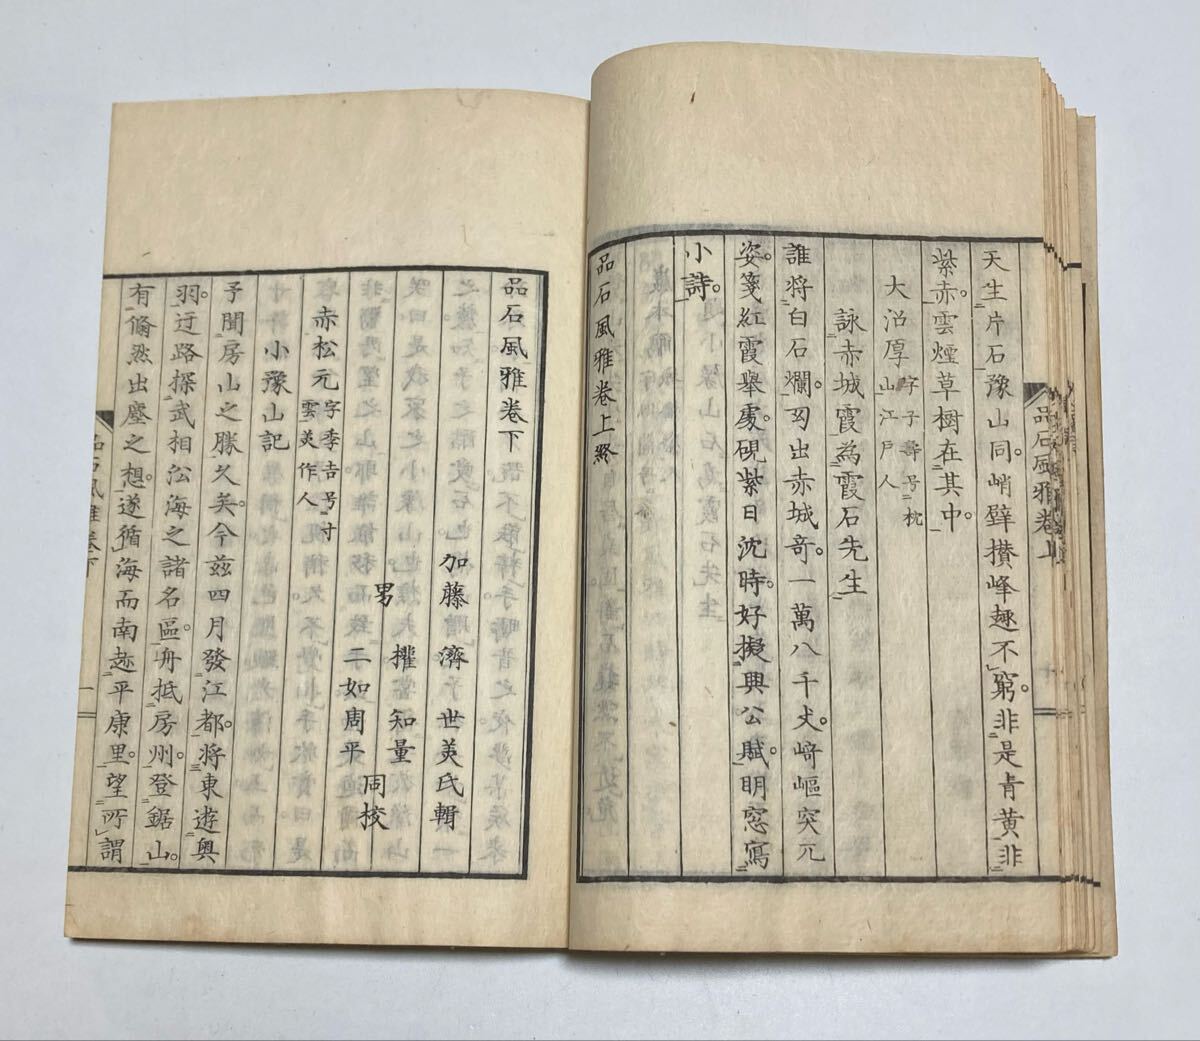 天生片石豫山同。峭壁攢峰趣不窮。非是青黃非
紫赤。雲煙草樹在其中。
大沼厚字子壽号枕山江戸人
詠赤城霞為霞石先生
誰將白石爛。幻出赤城奇。一萬八千丈。﨑嶇突兀
姿。箋紅霞舉處。硯紫日沈時。好擬興公賦。明窓寫
小詩。
品石風雅卷上終
品石風雅卷上
品石風雅卷下
加藤濟世美氏輯
男權知量
二如周平
同校
赤松元字季吉号寸雲美作人
小豫山記
予聞房山之勝久矣。今茲四月發江都。將東遊奧
羽。迂路探武相沿海之諸名區。舟抵房州。登鋸山。
有翛然出塵之想。遂循海而南趍平康里。望所謂
品石風雅卷下
一